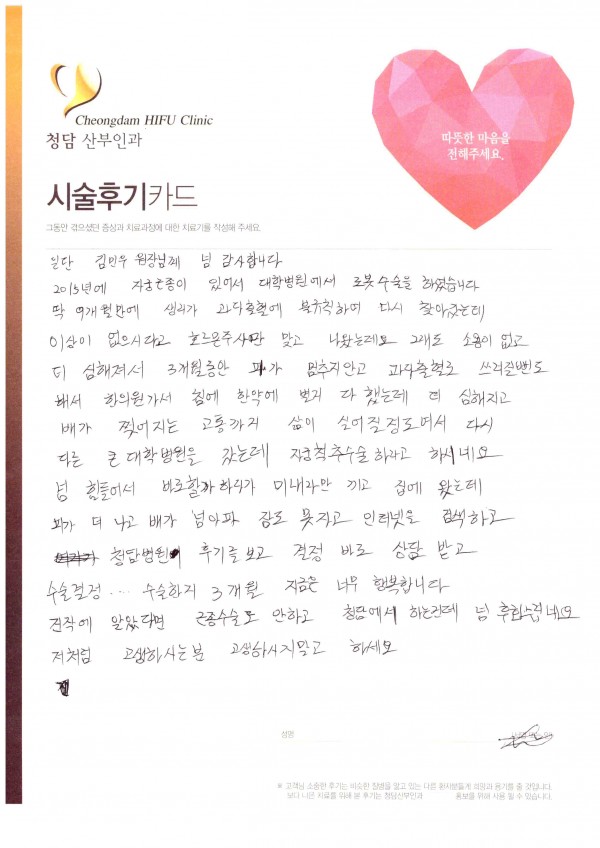 Cheongdam HIFU Clinic
청담 산부인과
따뜻한 마음을
전해주세요.
시술후기카드
그동안 겪으셨던 증상과 치료과정에 대한 치료기를 작성해 주세요.
일단 김민우 원장님께 넘 감사합니다
2015년에 자궁근종이 있어서 대학병원에서 로봇수술을 하였습니다
딱 9개월만에 생리가 과다출혈에 불규칙하여 다시 찾아갔는데
이상이 없으시다고 호르몬주사만 맞고 나왔는데요 그래도 소용이 없고
더 심해져서 3개월동안 피가 멈추지안고 과다출혈로 쓰러질번도
해서 한의원가서 침에 한약에 벌거 다 했는데 더 심해지고
배가 찢어지는 고통까지 삶이 싫어질정도여서 다시
다른 큰 대학병원을 갔는데 자궁적출수술 하라고 하시네요
넘 힘들어서 바로할까 하다가 미내라만 끼고 집에 왔는데
피가 더 나고 배가 넘아파 잠도 못자고 인터넷을 검색하고
청담병원 후기를 보고 결정 바로 상담 받고
수술결정 .... 수술한지 3개월 지금은 너무 행복합니다
진작에 알았다면 근종수술도 안하고 청담에서 하는건데 넘 후회스럽네요
저처럼 고생하시는분 고생하시지말고 하세요
성명
※ 고객님 소술한 후기는 비슷한 질병을 앓고 있는 다른 환자분들게 희망과 용기를 줄 것입니다.
보다 나은 치료를 위해 본 후기는 청담산부인과 홍보를 위해 사용 될 수 있습니다.